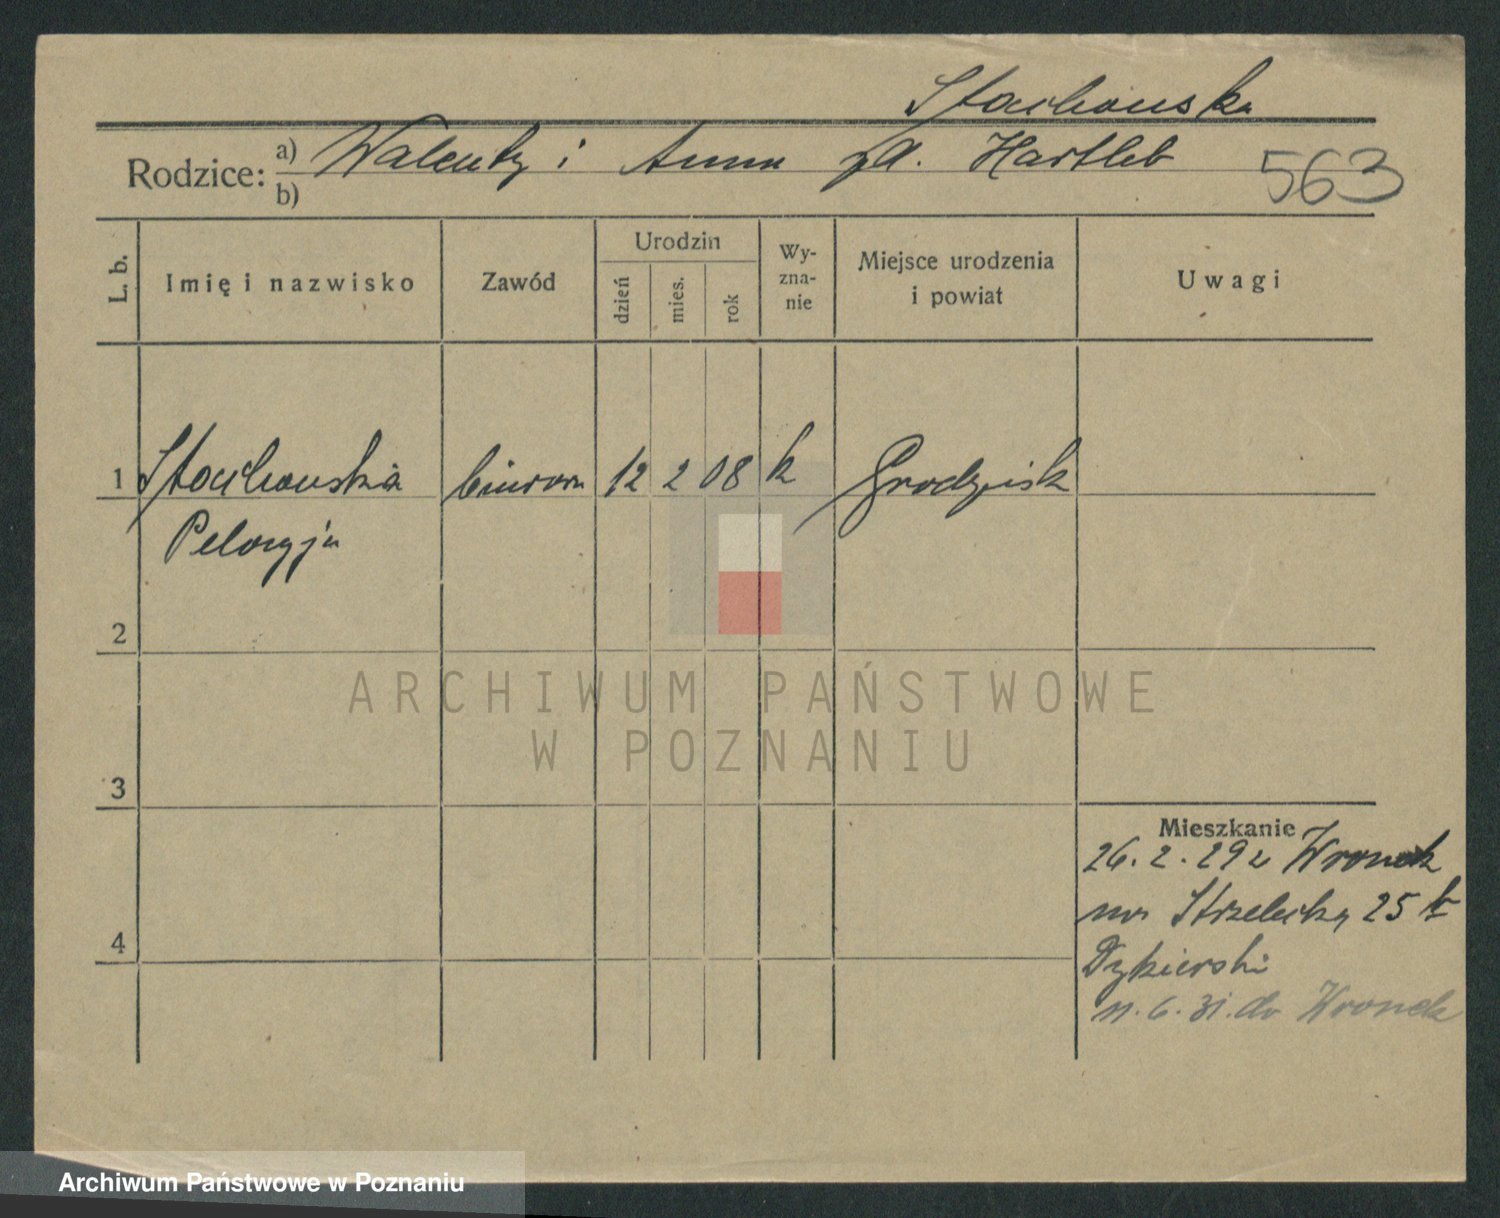 Stachowska
Rodzice: a) Walenty i Anna zd. Hartleb
b)
563
L. b.
Imię i nazwisko
Zawód
Urodzin
dzień
mies.
rok
Wy-
zna-
nie
Miejsce urodzenia
i powiat
Uwagi
1 Stachowska biurow 12 2 08 k Grodzisk
Pelagja
2
3
4
Mieszkanie
26. 2. 29 z Wronek
na Strzelecką 25
Dykierski
11. 6. 31. do Wronek
ARCHIWUM PAŃSTWOWE
W POZNANIU
Archiwum Państwowe w Poznaniu